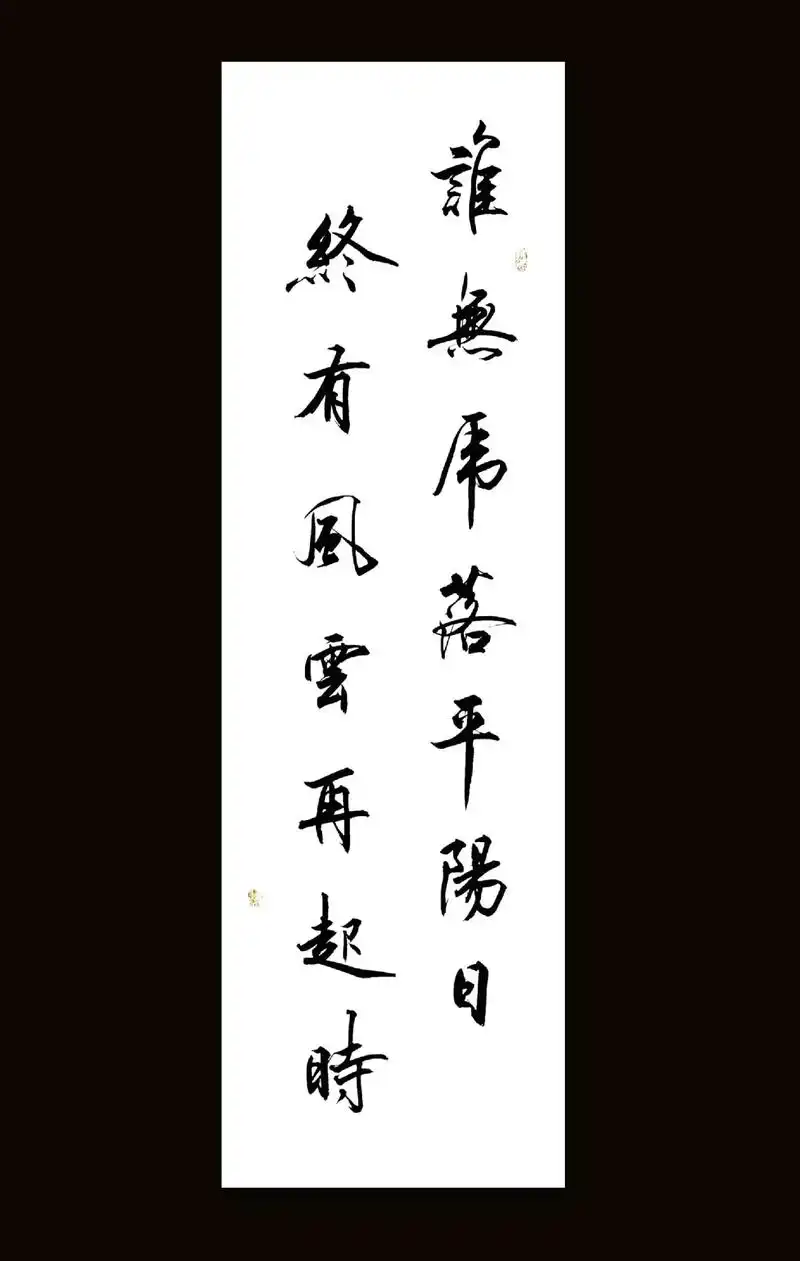 誰無虎落平陽日
終有風雲再起時